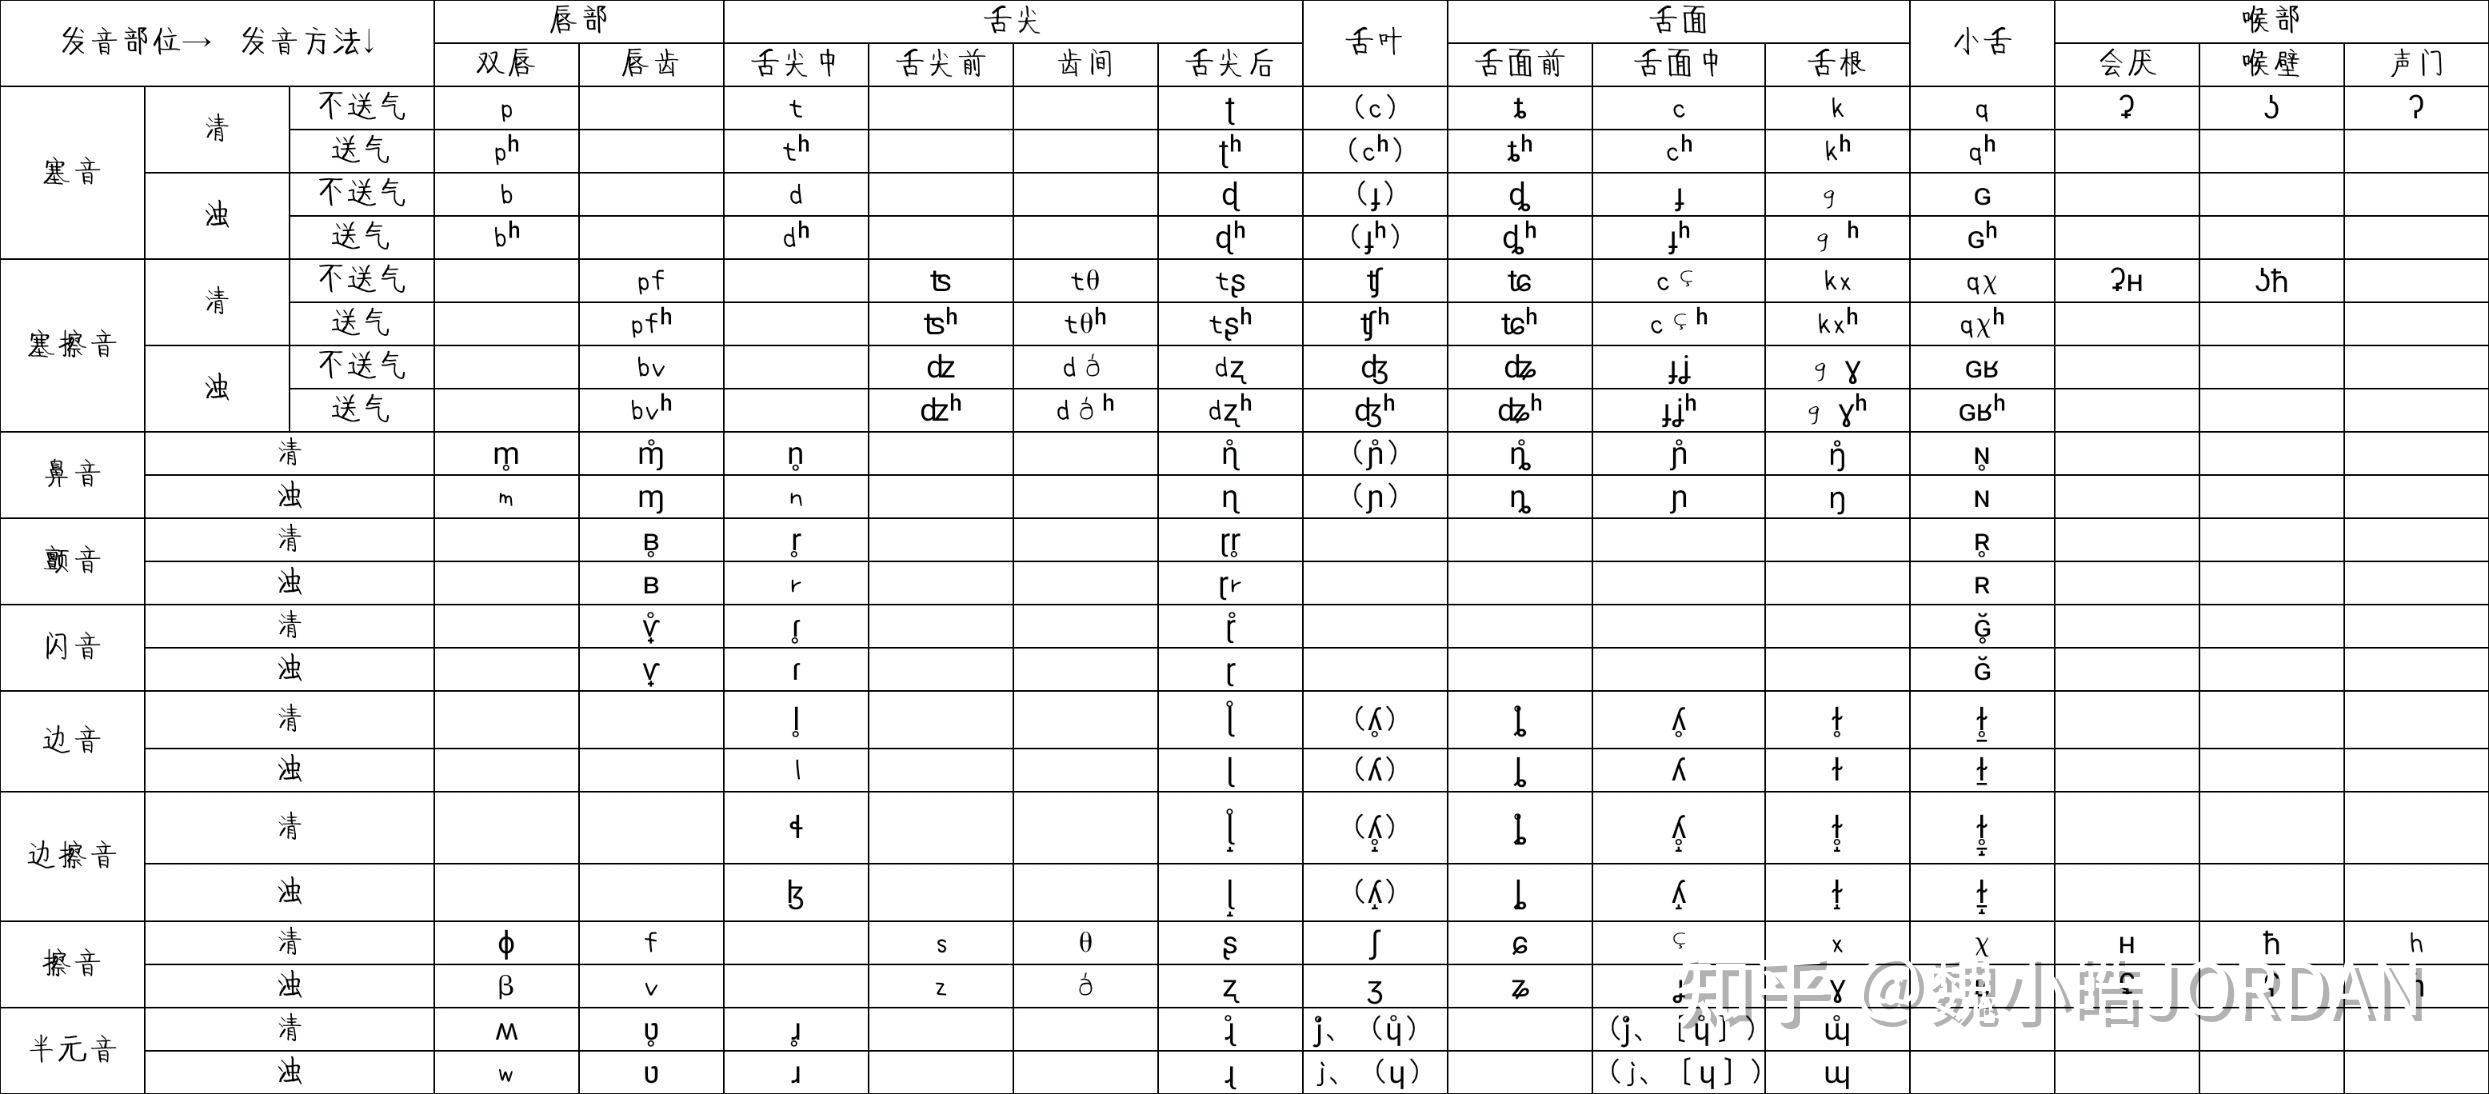 发音部位→ 发音方法↓ 唇部 舌尖 舌叶 舌面 小舌 喉部
双唇 唇齿 舌尖中 舌尖前 齿间 舌尖后 舌面前 舌面中 舌根 会厌 喉壁 声门
塞音 清 不送气 p t ʈ (c) ȶ c k q ʡ ʖ ʔ
送气 pʰ tʰ ʈʰ (cʰ) ȶʰ cʰ kʰ qʰ
浊 不送气 b d ɖ (ɟ) ȡ ɟ g ɢ
送气 bʰ dʰ ɖʰ (ɟʰ) ȡʰ ɟʰ g ʰ ɢʰ
塞擦音 清 不送气 pf ʦ tθ tʂ ʧ ʨ cç kx qχ ʡʜ ʖħ
送气 pfʰ ʦʰ tθʰ tʂʰ ʧʰ ʨʰ cçʰ kxʰ qχʰ
浊 不送气 bv ʣ dð dʐ ʤ ʥ ɟʝ g ɣ ɢʁ
送气 bvʰ ʣʰ dðʰ dʐʰ ʤʰ ʥʰ ɟʝʰ g ɣʰ ɢʁʰ
鼻音 清 m̥ ɱ̊ n̥ ɳ̊ (ɲ̊) ȵ̊ ɲ̊ ŋ̊ ɴ̥
浊 m ɱ n ɳ (ɲ) ȵ ɲ ŋ ɴ
颤音 清 ʙ̥ r̥ ɽr̥ ʀ̥
浊 ʙ r ɽr ʀ
闪音 清 ⱱ̟̊ ɾ̥ ɽ̊ ɢ̥̆
浊 ⱱ̟ ɾ ɽ ɢ̆
边音 清 l̥ ɭ̊ (ʎ̥) ȴ̊ ʎ̥ ɫ̥ ɫ̠̥
浊 l ɭ (ʎ) ȴ ʎ ɫ ɫ̠
边擦音 清 ɬ ɭ̝̊ (ʎ̥̝) ȴ̝̊ ʎ̥̝ ɫ̥̝ ɫ̠̥̝
浊 ɮ ɭ̝ (ʎ̝) ȴ̝ ʎ̝ ɫ̝ ɫ̠̝
擦音 清 ɸ f s θ ʂ ʃ ɕ ç x χ ʜ ħ h
浊 β v z ð ʐ ʒ ʑ ʝ ɣ
半元音 清 ʍ ʋ̥ ɹ̥ ɻ̊ j̊、(ɥ̊) (j̊、[ɥ̊]) ɰ̊
浊 w ʋ ɹ ɻ j、(ɥ) (j、[ɥ]) ɰ
知乎 @魏小皓JORDAN